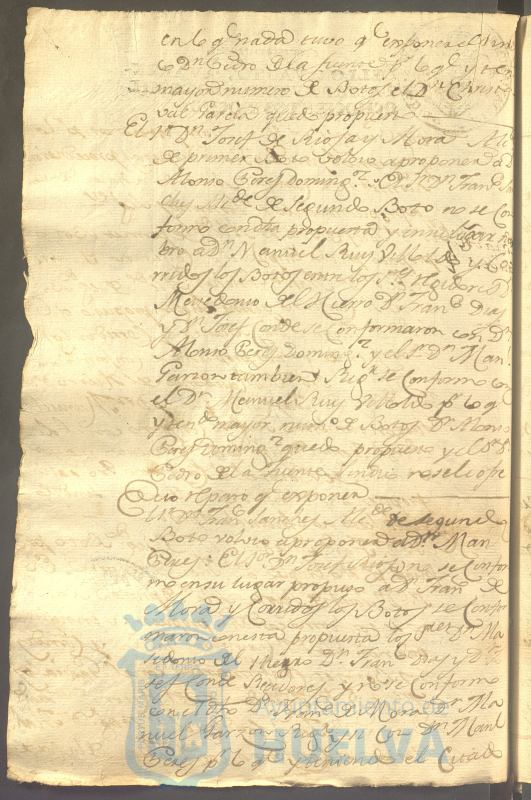 en lo q.e nada tuvo q.e exponer el Sindi
co D.n Pedro de la fuente p.r lo q.l y ten
mayor numero de Botos el D.n Christo
val Garcia quedo propuesto
El S.r D.n Josef de Rioja y Mora Alc.
de primer Boto volvio a proponer a D.n
Alonso Peres Doming.z
ches Alc.de de segundo Boto no se con
formo con dha propuesta y en su lugar nom
bro a D.n Manuel Ruiz y Co
rridos los Botos entre los S.res Regidores D.n
Mazedonio del Hierro D.n Fran.co Dias
y D.n Josef Conde se conformaron con D.n
Alonso Peres Doming.z y el S.r D.n Man.l
Garzon tambien Reg.r se conformo con
el D.n Manuel Ruiz p.r lo q.l
y ten.do mayor num.o de Botos D.n Alonso
Peres Doming.z quedo propuesto y el S.r D.n
Pedro de la fuente Sindico no se le ofre
cio reparo q.e exponer
El S.r D.n Fran.co Sanches Alc.de de segundo
Boto volvio a proponer a D.n Man.l
Peres: El S.r D.n Josef Rioja no se confor
mo en su lugar propuso a D.n Fran.co de
Mora y Corridos los Botos se confor
maron con esta propuesta los S.res D.n Ma
sedonio del Hierro D.n Fran.co Dias y D.n Jo
sef Conde Regidores y no se conformo
con el D.n Fran.co de Mora D.n Ma
nuel Garzon Reg.r y si con D.n Man.l
Peres p.r lo q.l y teniendo el citado
Ayuntamiento de
HUELVA